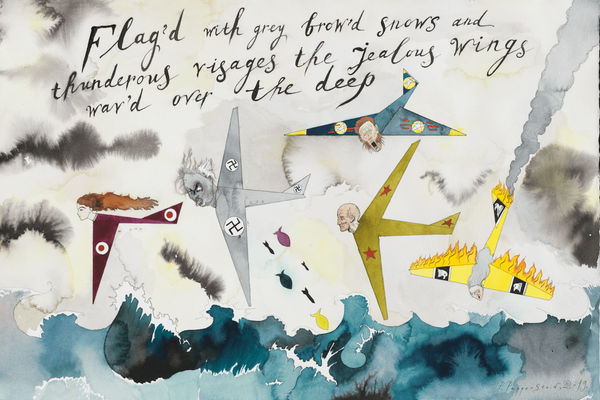 Flag'd with grey brow'd snows and
thunderous visages the jealous wings
wav'd over the deep